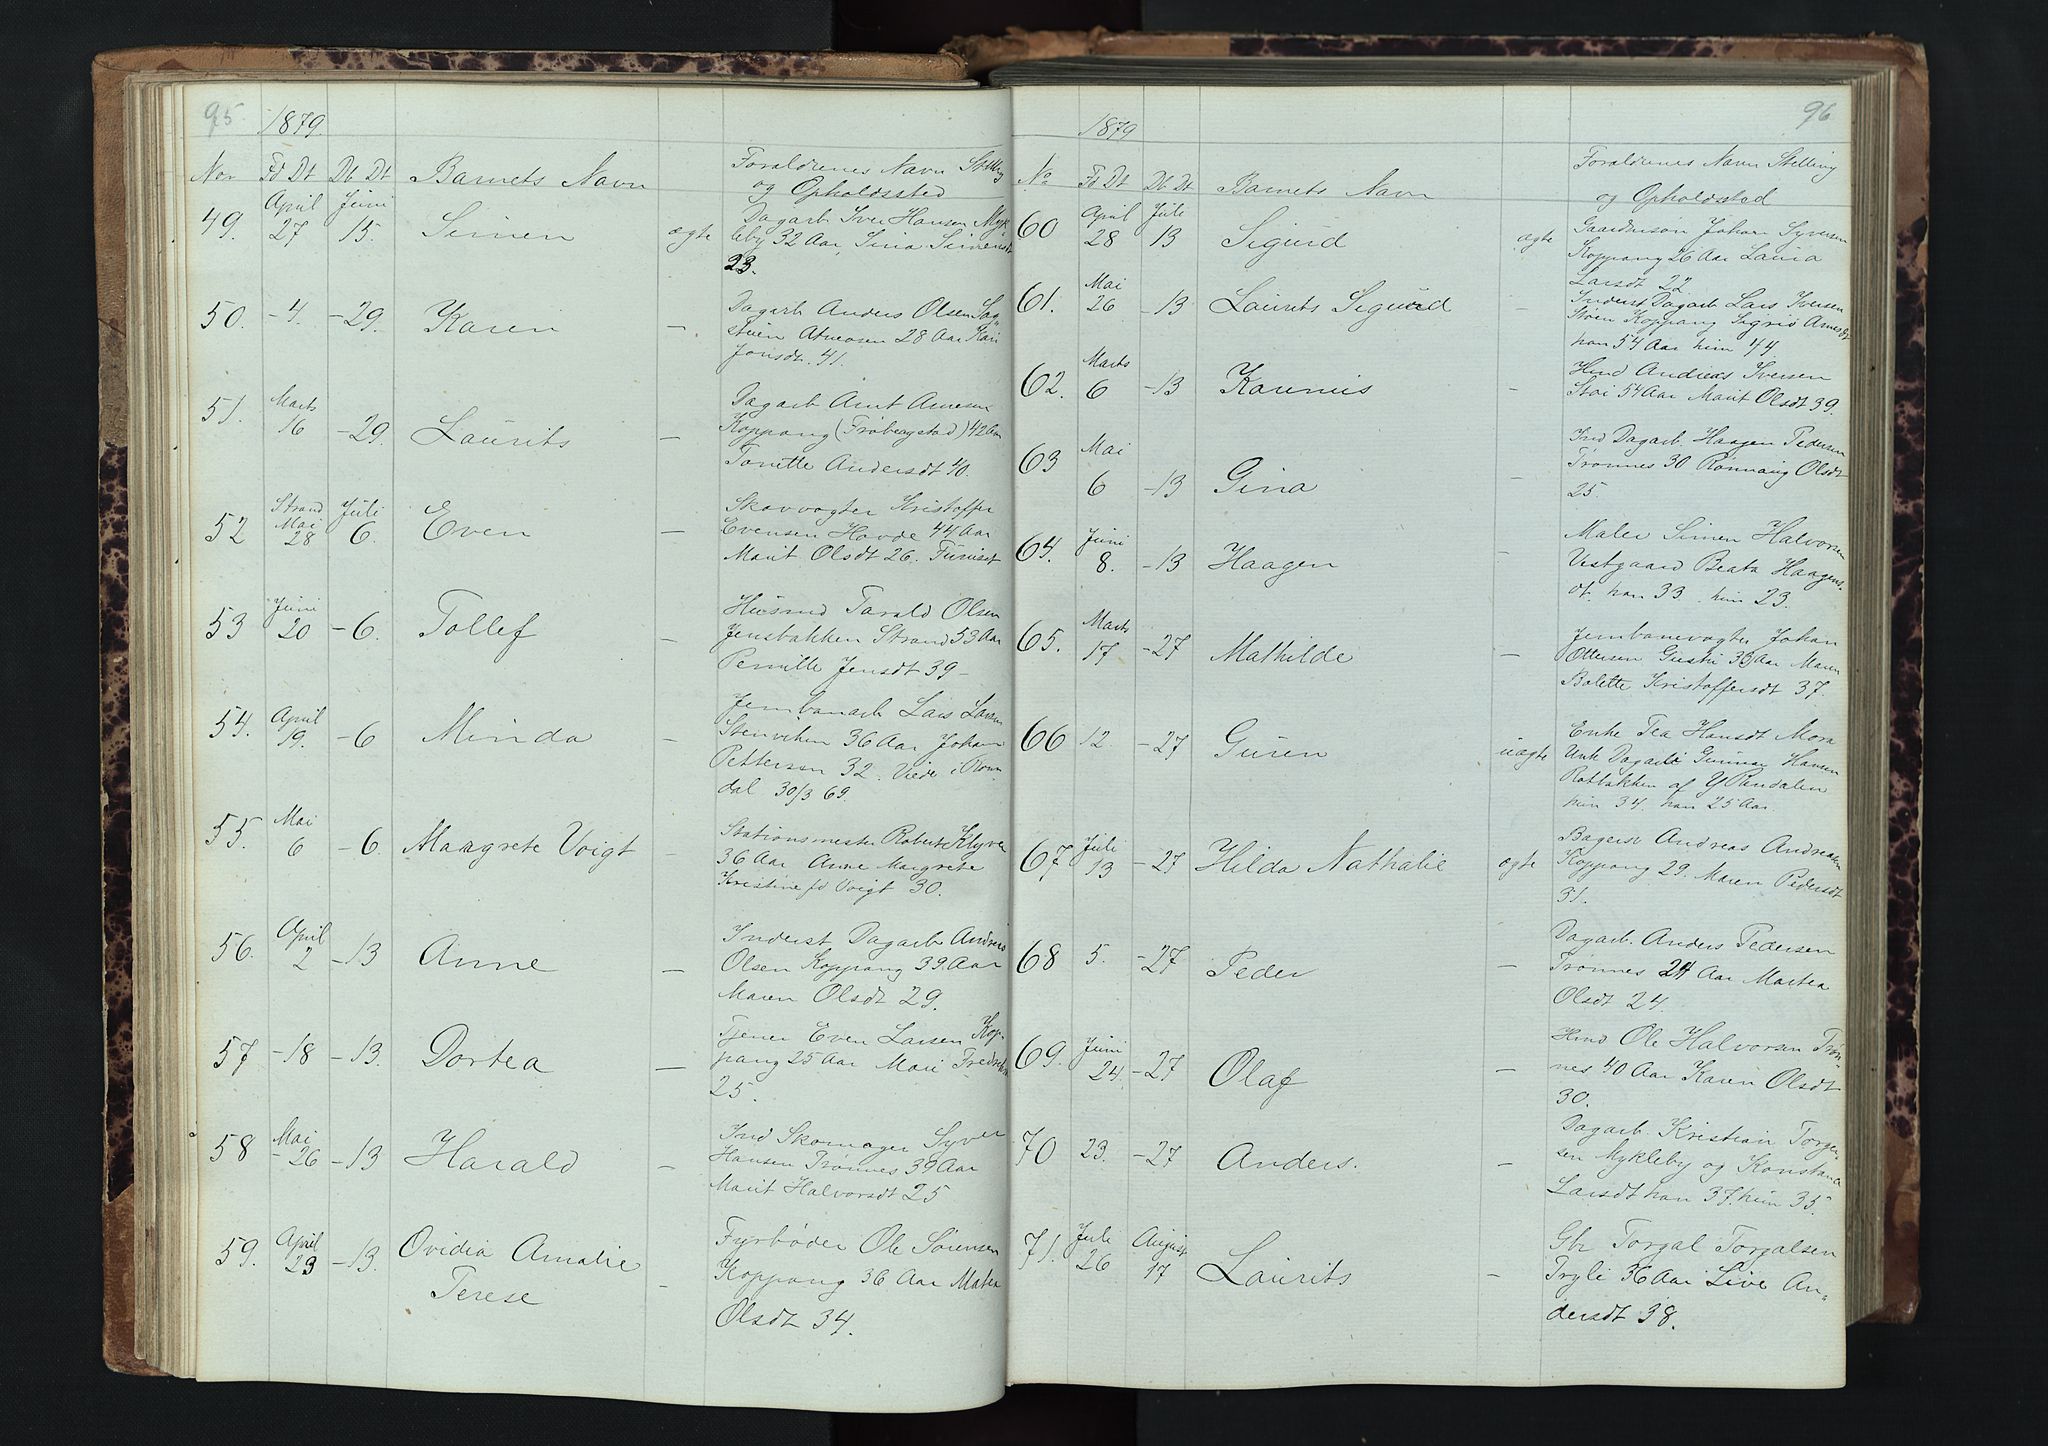 95.
1879
Nor Fd Dt Db Dt Barnets Navn
Foraldrenes Navn Stelling
og Opholdssted
49. April 27 Juni 15. Simen ægte
Dagarb Iver Hansen Myk-
leby 32 Aar, Sina Simensdt
23.
50. -4. -29. Karen -
Dagarb Anders Olsen Sag-
stuen Atneosen 28 Aar Kari
Jonsdt. 41.
51. Marts 16 -29. Laurits -
Dagarb Arnt Arnesen
Koppang (Trøbergstad) 42 Aar
Tonette Andersdt 40.
52 Strand Mai 28 Juli 6. Even -
Skovvogter Kristoffer
Evensen Hovde 44 Aar
Marit Olsdt 26. Furuset
53 Juni 20 -6. Tollef -
Husmd Tarald Olsen
Jensbakken Strand 53 Aar
Pernille Jensdt 39 -
54. April 19. -6 Minda -
Jernbanarb Lars Larsen
Stenviken 36 Aar Johan
Pettersen 32. Viede i Rom-
dal 30/3 69.
55. Mai 6 -6. Maagrete Voigt -
Stationsmester Robert Klyve
36 Aar Anne Margrete
Kristine fd Voigt 30.
56. April 2 -13 Anne -
Inderst Dagarb Andreas
Olsen Koppang 39. Aar
Maren Olsdt 29.
57 -18 -13. Dortea -
Tjener Even Larsen Kop-
pang 25 Aar Mari Fredriksen
25.
58 Mai -26 -13 Harald -
Ind Skomager Syver
Hansen Trønnes 39 Aar
Marit Halvorsdt 25
59. April 23 -13. Ovidia Amalie
Terese -
Fyrbøder Ole Sørensen
Koppang 36 Aar Matea
Olsdt 34.
96
1879
No Fd Dt Db Dt Barnets Navn
Foraldrenes Navn Stelling
og Opholdssted
60 April 28 Juli 13 Sigurd ægte
Gaardmsøn Johan Syversen
Koppang 26 Aar Laura
Larsdt 22
61. Mai 26 -13 Laurits Sigurd -
Inderst Dagarb Lars Iversen
Støen Koppang Sigrid Arnesdt
han 54 Aar hun 44
62. Marts 6 -13 Karenus -
Hmd Andreas Iversen
Stai 54 Aar Marit Olsdt 39.
63 Mai 6 -13 Gina -
Ind Dagarb. Haagen Pedersen
Trønnes 30 Rønnaug Olsdt
25.
64. Juni 8. -13 Haagen -
Maler Simen Halvorsen
Vestgaard Beata Haagens-
dt. han 33 hun 23.
65. Marts 17 -27 Mathilde -
Jernbanevogter Johan
Ottersen Gustu 33 Aar Maren
Bolette Kristoffersdt 37.
66 12. -27 Guren uægte
Enke Tea Hansdt Mora
Unk Dagarb Gunnar Hansen
Rotbakken af Y Rendalen
hun 34 han 25 Aar.
67 Juli 13 -27 Hilda Nathalie ægte
Bagersv Andreas Andreasen
Koppang 29. Maren Pedersdt
31.
68 5. -27 Peder -
Dagarb. Anders Pedersen
Trønnes 24 Aar Martea
Olsdt 24.
69. Juni 24. -27 Olaf -
Hmd Ole Halvorsen Trøn-
nes 40 Aar Karen Olsdt
30.
70 23. -27 Anders. -
Dagarb. Kristian Torger-
sen Mykleby og Konstance
Larsdt han 37. hun 35.
71. Juli 26 August 17 Laurits -
Gbr Torgal Torgalsen
Tryli 36 Aar Live An-
dersdt 38.